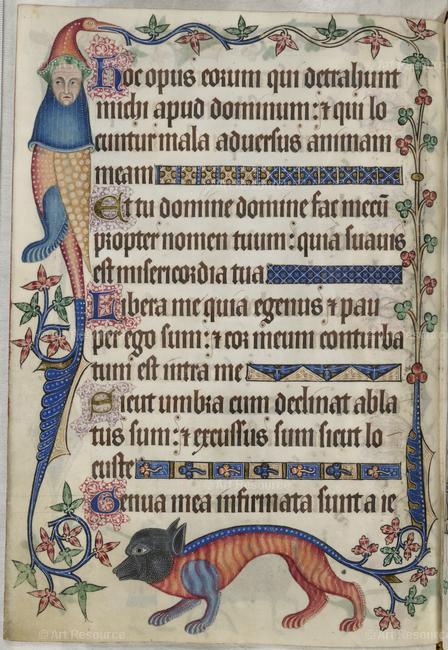 hoc opus eorum qui detrahunt
michi apud dominum: ⁊ qui lo
cuntur mala adversus animam
meam
Et tu domine domine fac mecū
propter nomen tuum: quia suavis
est misericordia tua
Libera me quia egenus ⁊ pau
per ego sum: ⁊ cor meum conturba
tum est intra me
Sicut umbra cum declinat abla
tus sum: ⁊ excussus sum sicut lo
custe
Genua mea infirmata sunt a ie
© Art Resource
© Art Resource